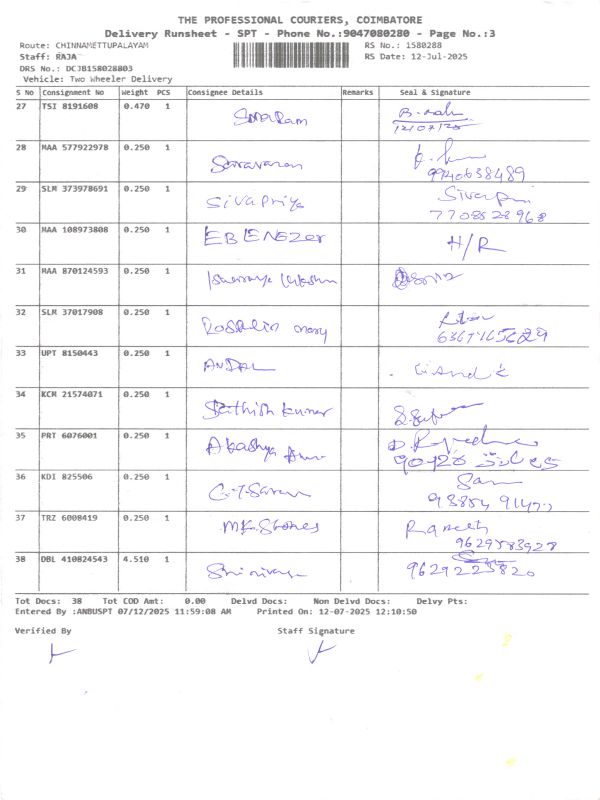 THE PROFESSIONAL COURIERS, COIMBATORE
Delivery Runsheet - SPT - Phone No.:9047080280 - Page No.:3
Route: CHINNAMETTUPALAYAM RS No.: 1580288
Staff: RAJA RS Date: 12-Jul-2025
DRS No.: DCJB158028803
Vehicle: Two Wheeler Delivery
S No Consignment No Weight PCS Consignee Details Remarks Seal & Signature
27 TSI 8191608 0.470 1
12/07/25
28 MAA 577922978 0.250 1 Saravanan
9940638489
29 SLM 373978691 0.250 1 SivaPriya
7708528968
30 MAA 108973808 0.250 1 EBENEZer H/R
31 MAA 870124593 0.250 1
32 SLM 37017908 0.250 1 Rosalin mary
33 UPT 8150443 0.250 1 ANDAL
34 KCM 21574071 0.250 1 Sathish kumar
35 PRT 6076001 0.250 1
36 KDI 825506 0.250 1
37 TRZ 6008419 0.250 1 M.K. Stones Ramesh
9629583928
38 DBL 410824543 4.510 1 Srinivasa
9629225820
Tot Docs: 38 Tot COD Amt: 0.00 Delvd Docs: Non Delvd Docs: Delvy Pts:
Entered By :ANBUSPT 07/12/2025 11:59:08 AM Printed On: 12-07-2025 12:10:50
Verified By Staff Signature